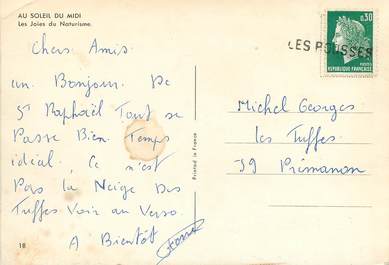 AU SOLEIL DU MIDI
Les Joies du Naturisme.
0,30
POSTES
REPUBLIQUE FRANÇAISE
LES ROUSSES
Chers Amis
un Bonjour. De
St Raphaël Tout se
Passe Bien Temps
idéal. Ce n'est
Pas la Neige Des
Tuffes Voir au Verso.
A Bientôt
Michel Georges
Les Tuffes
39 Prémanon
Printed in France
18